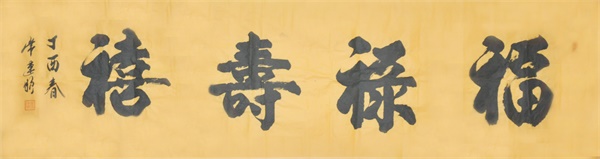 福祿壽禧
丁酉春